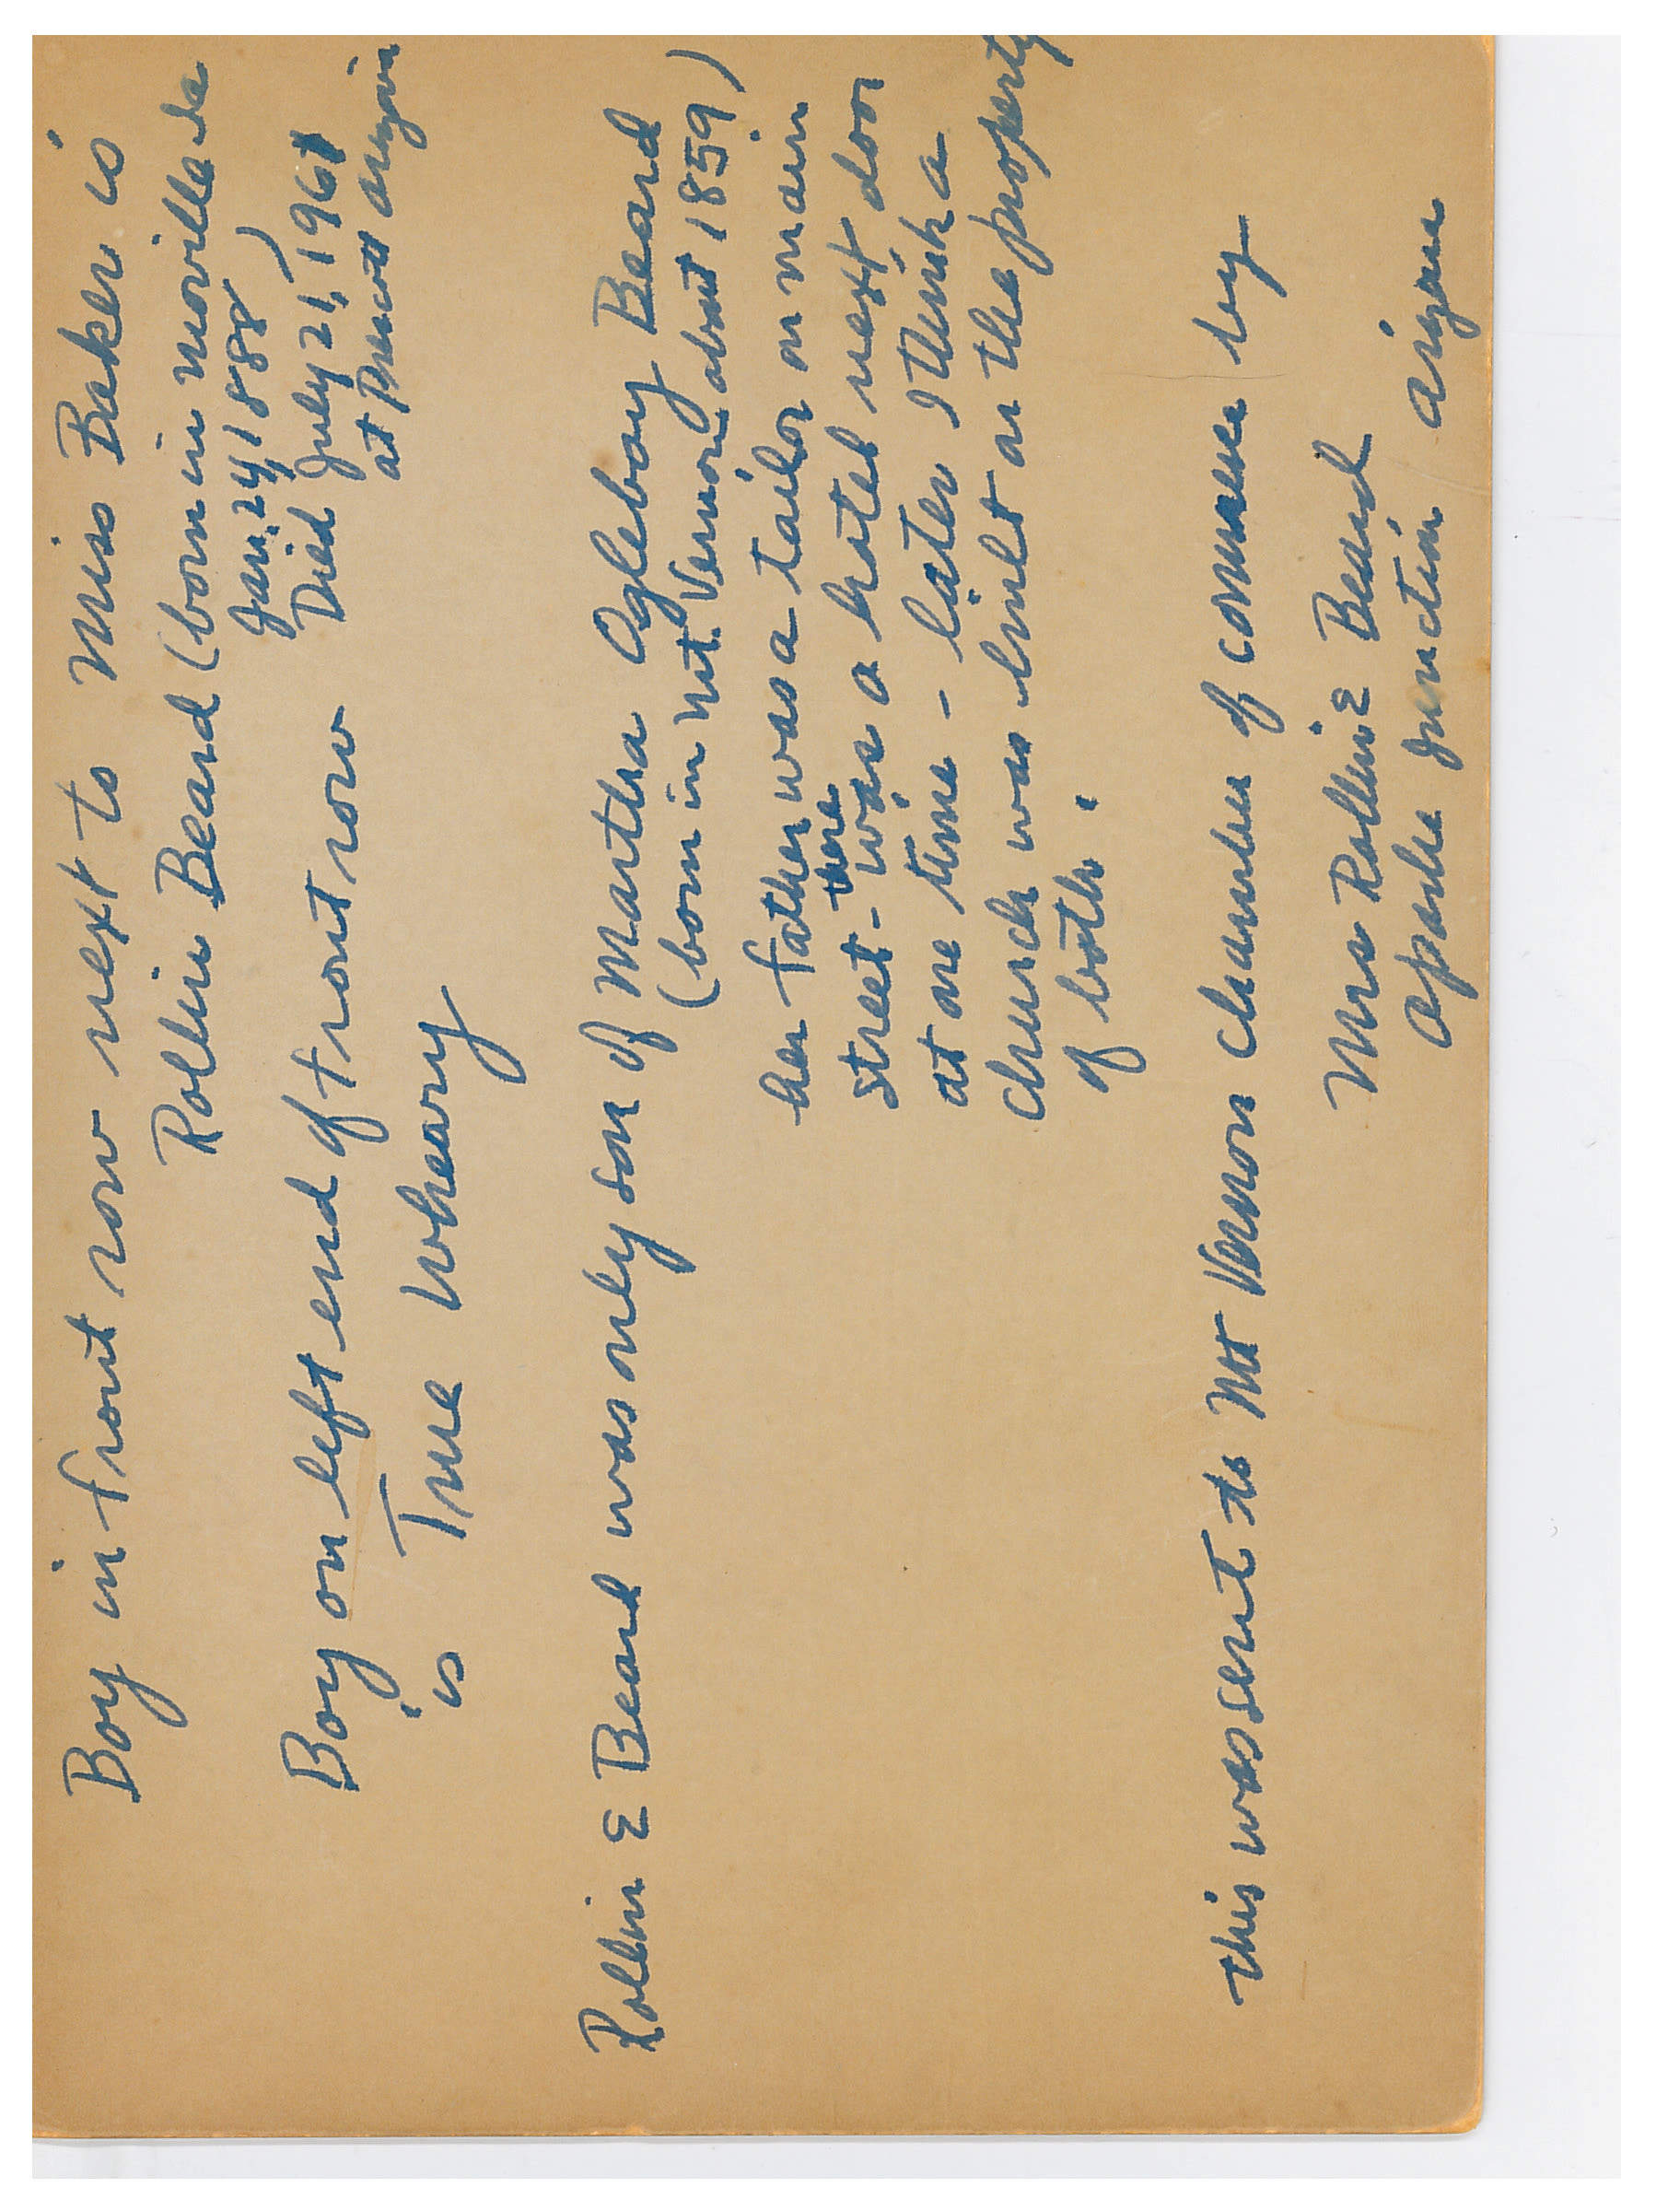 Boy in front row next to Miss Baker is
Rollin Beard (born in Moville Ia
Jan. 24, 1888)
Died July 21, 1961
at Prescott Arizona
Boy on left end of front row
is True Whearry
Rollin E Beard was only son of Martha Oglebay Beard
(born in Mt Vernon about 1859)
her father was a tailor on main
street - there was a hotel next door
at one time - later I think a
church was built on the property
of both.
This was sent to Mt Vernon Chamber of Commerce by
Mrs Rollin E Beard
Apache Junction Arizona